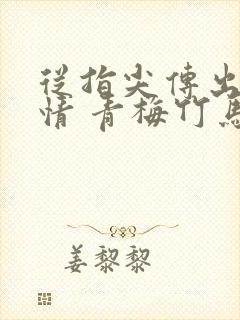 從指尖傳出
情 青梅竹馬
姜黎黎